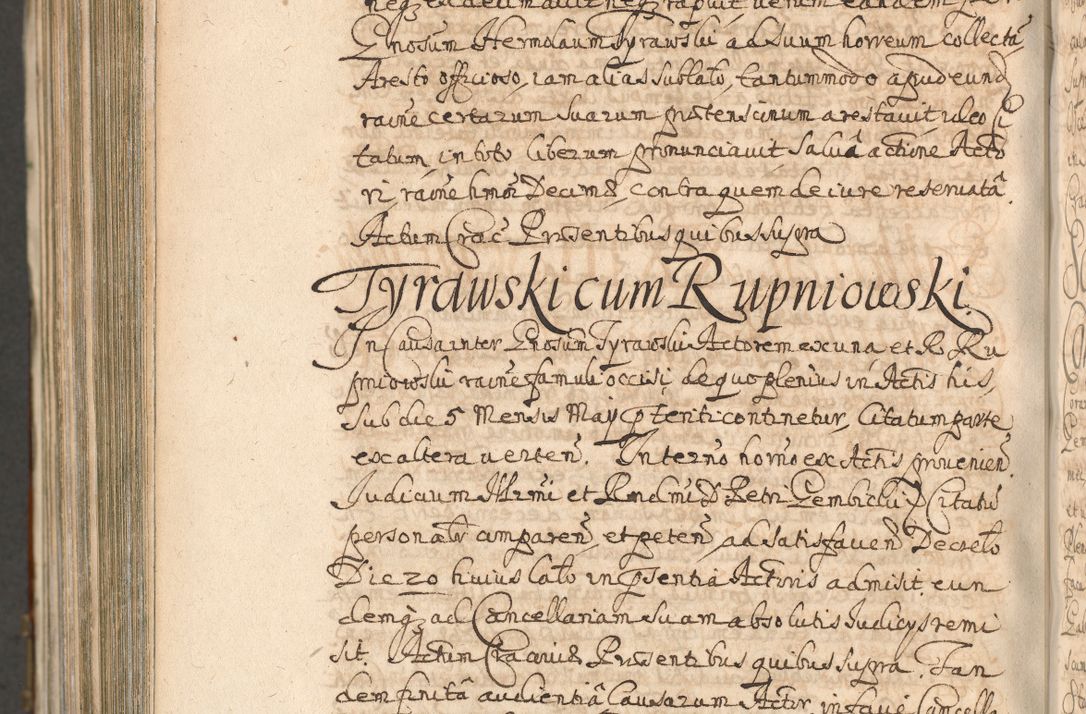 Gnosum Hermolaum Tyrawski ad suum horreum collectā
Aresto officioso, iam alias sublato, tantummodo apud eund
raōne certarum suarum prætensionum arestavit ideo Ci
tatum, in toto liberum pronunciavit Salua actione Acto
ri, raōne hmōi Decimæ, contra quem de iure reseruatâ
Actum Crac Præsentibus quibus supra
Tyrawski cum Rupniowski
In Causa inter Gnosum Tyrawski Actorem ex una et R. Ru
pniowski raōne famuli occisi, de quo plenius in Actis his,
sub die 5 Mensis Maij præteriti continetur, Citatum parte
ex altera verteñ. In termō hornō ex Actis provenieñ
Judicium Illrmi et Rndmi D Petri Gembicki Citatus
personalr compareñ, et peteñ, ad satisfacieñ Decreto
Die 20 huius lato in pntia Actoris admisit, eun
demq ad Cancellariam suam absolutis Judicijs remi
sit. Actum Cracouiæ Præsentibus quibus supra. Tan
dem finitâ audientiâ Causarum Actor in facie Cancella